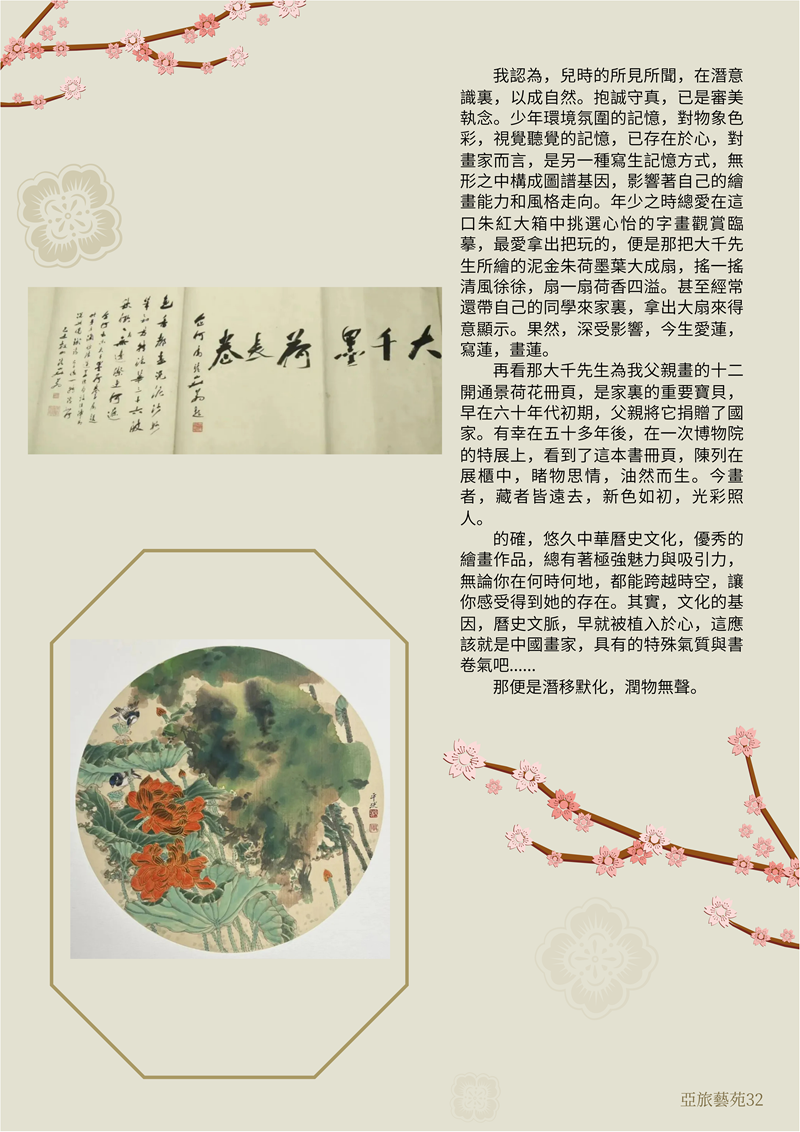 我認為，兒時的所見所聞，在潛意
識裏，以成自然。抱誠守真，已是審美
執念。少年環境氛圍的記憶，對物象色
彩，視覺聽覺的記憶，已存在於心，對
畫家而言，是另一種寫生記憶方式，無
形之中構成圖譜基因，影響著自己的繪
畫能力和風格走向。年少之時總愛在這
口朱紅大箱中挑選心怡的字畫觀賞臨
摹，最愛拿出把玩的，便是那把大千先
生所繪的泥金朱荷墨葉大成扇，搖一搖
清風徐徐，扇一扇荷香四溢。甚至經常
還帶自己的同學來家裏，拿出大扇來得
意顯示。果然，深受影響，今生愛蓮，
寫蓮，畫蓮。
再看那大千先生為我父親畫的十二
開通景荷花冊頁，是家裏的重要寶貝，
早在六十年代初期，父親將它捐贈了國
家。有幸在五十多年後，在一次博物院
的特展上，看到了這本書冊頁，陳列在
展櫃中，睹物思情，油然而生。今畫
者，藏者皆遠去，新色如初，光彩照
人。
的確，悠久中華曆史文化，優秀的
繪畫作品，總有著極強魅力與吸引力，
無論你在何時何地，都能跨越時空，讓
你感受得到她的存在。其實，文化的基
因，曆史文脈，早就被植入於心，這應
該就是中國畫家，具有的特殊氣質與書
卷氣吧......
那便是潛移默化，潤物無聲。
大千墨荷長卷
亞旅藝苑32